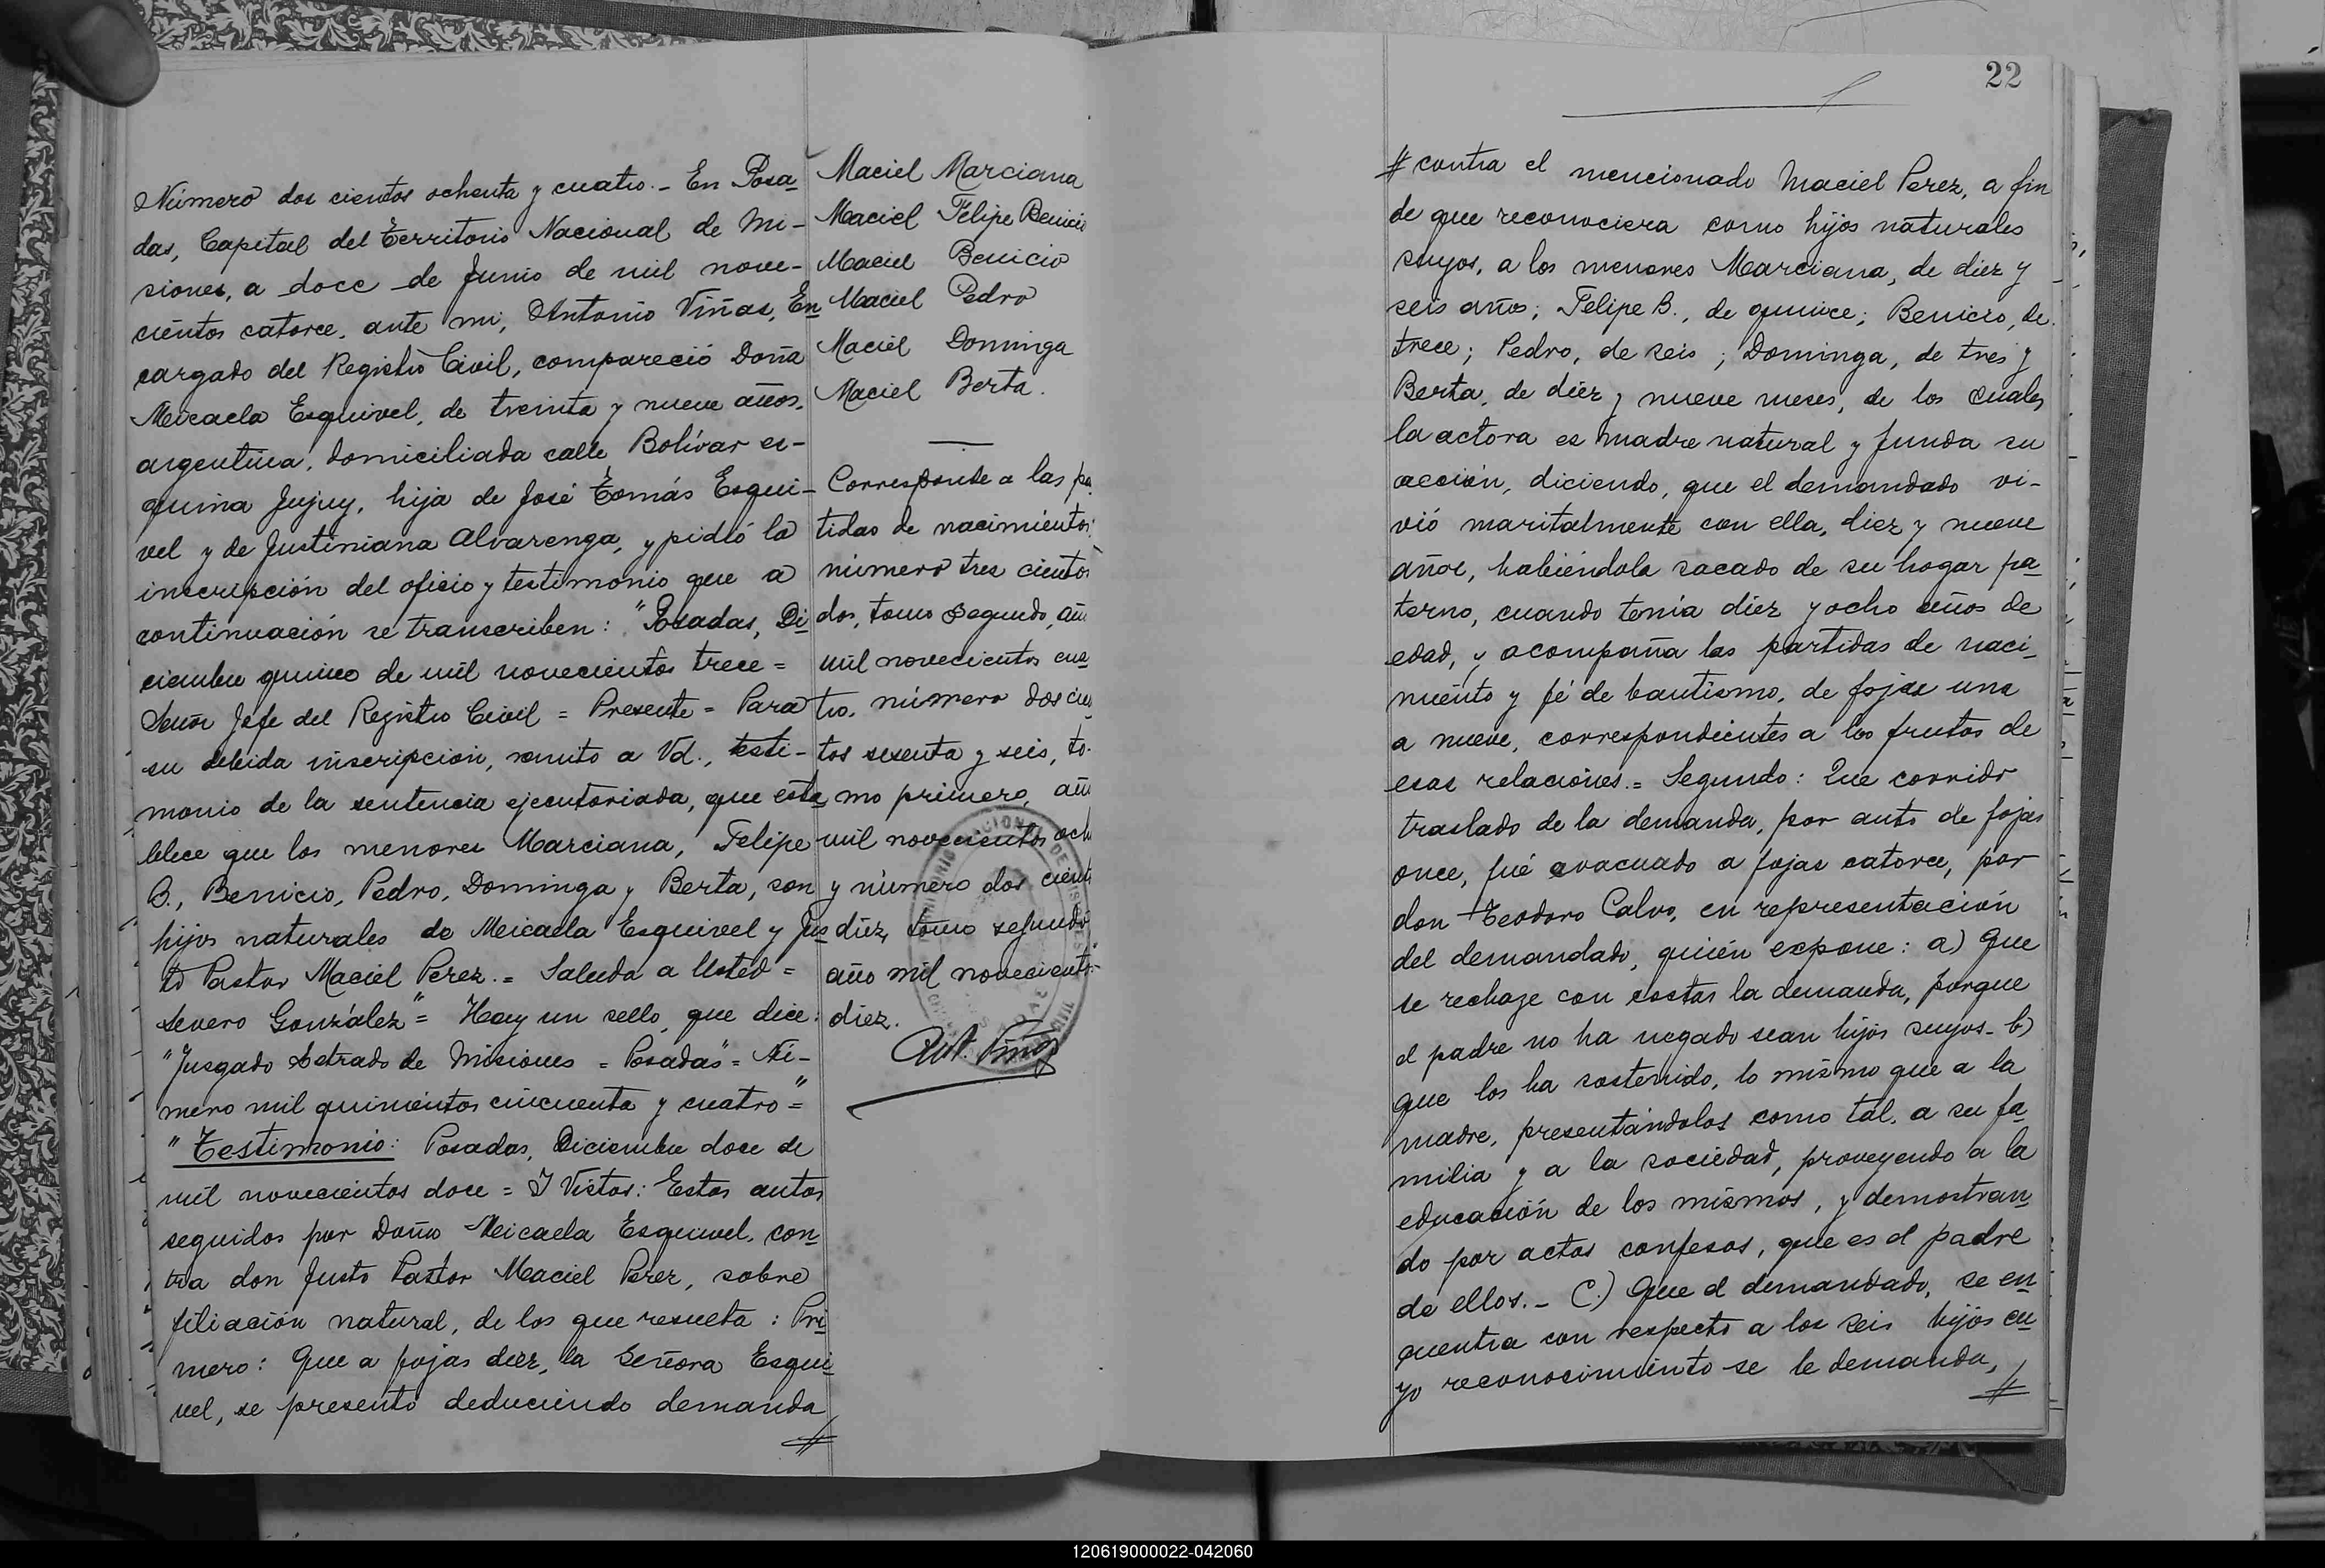 Número dos cientos ochenta y cuatro.- En Posa-
das, Capital del Territorio Nacional de Mi-
siones, a doce de Junio de mil nove-
cientos catorce, ante mi, Antonio Viñas, En
cargado del Registro Civil, compareció Doña
Meicaela Esquivel, de treinta y nueve años,
argentina, domiciliada calle Bolívar es-
quina Jujuy, hija de José Tomás Esqui-
vel y de Justiniana Alvarenga, y pidió la
inscripción del oficio y testimonio que a
continuación se transcriben: "Posadas, Di
ciembre quince de mil novecientos trece =
Señor Jefe del Registro Civil = Presente = Para
su debida inscripción, remito a Vd., testi-
monio de la sentencia ejecutoriada, que esta
blece que los menores Marciana, Felipe
B., Benicio, Pedro, Dominga y Berta, son
hijos naturales de Meicaela Esquivel y Jus
to Pastor Maciel Perez. = Saluda a Usted =
Severo González" = Hay un sello, que dice:
"Jusgado Letrado de Misiones = Posadas" = Nú-
mero mil quinientos cincuenta y cuatro" =
"Testimonio: Posadas, Diciembre doce de
mil novecientos doce = I Vistos: Estos autos
seguidos por Doña Meicaela Esquivel, con
tra don Justo Pastor Maciel Perez, sobre
filiación natural, de los que resulta: Pri
mero: Que a fojas diez, la Señora Esqui
vel, se presentó deduciendo demanda
#
Maciel Marciana
Maciel Felipe Benicio
Maciel Benicio
Maciel Pedro
Maciel Dominga
Maciel Berta.
Corresponde a las pa
tidas de nacimientos:
número tres cientos
dos, tomo segundo, añ
mil novecientos cua
tro, número dos cien
tos sesenta y seis, to-
mo primero, añ
mil novecientos och
y número dos cient
diez, tomo segundo
año mil novecientos
diez.
Ant. Viñas
22
# contra el mencionado Maciel Perez, a fin
de que reconociera como hijos naturales
suyos, a los menores Marciana, de diez y
seis años; Felipe B., de quince; Benicio, de
trece; Pedro, de seis; Dominga, de tres y
Berta, de diez y nueve meses, de los cuales
la actora es madre natural y funda su
acción, diciendo, que el demandado vi-
vió maritalmente con ella, diez y nueve
años, habiéndola sacado de su hogar pa
terno, cuando tenia diez y ocho años de
edad, y acompaña las partidas de naci-
miento y fé de bautismo, de fojas una
a nueve, correspondientes a los frutos de
esas relaciones. = Segundo: Que corrido
traslado de la demanda, por auto de fojas
once, fué evacuado a fojas catorce, por
don Teodoro Calvo, en representación
del demandado, quién expone: a) Que
se rechaze con costas la demanda, porque
el padre no ha negado sean hijos suyos - b)
que los ha sostenido, lo mismo que a la
madre, presentándolos como tal, a su fa
milia y a la sociedad, proveyendo a la
educación de los mismos, y demostran
do por actos confesos, que es el padre
de ellos. - C.) Que el demandado, se en
cuentra con respecto a los seis hijos cu
yo reconocimiento se le demanda,
#
120619000022-042060